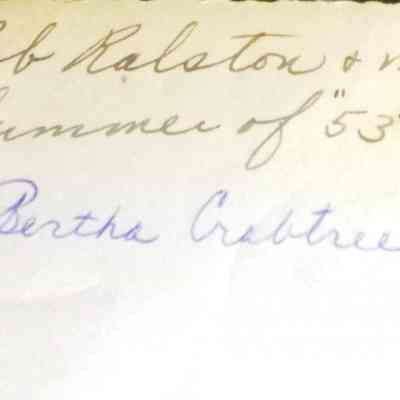 b Ralston &
Summer of "53
Bertha Crabtree